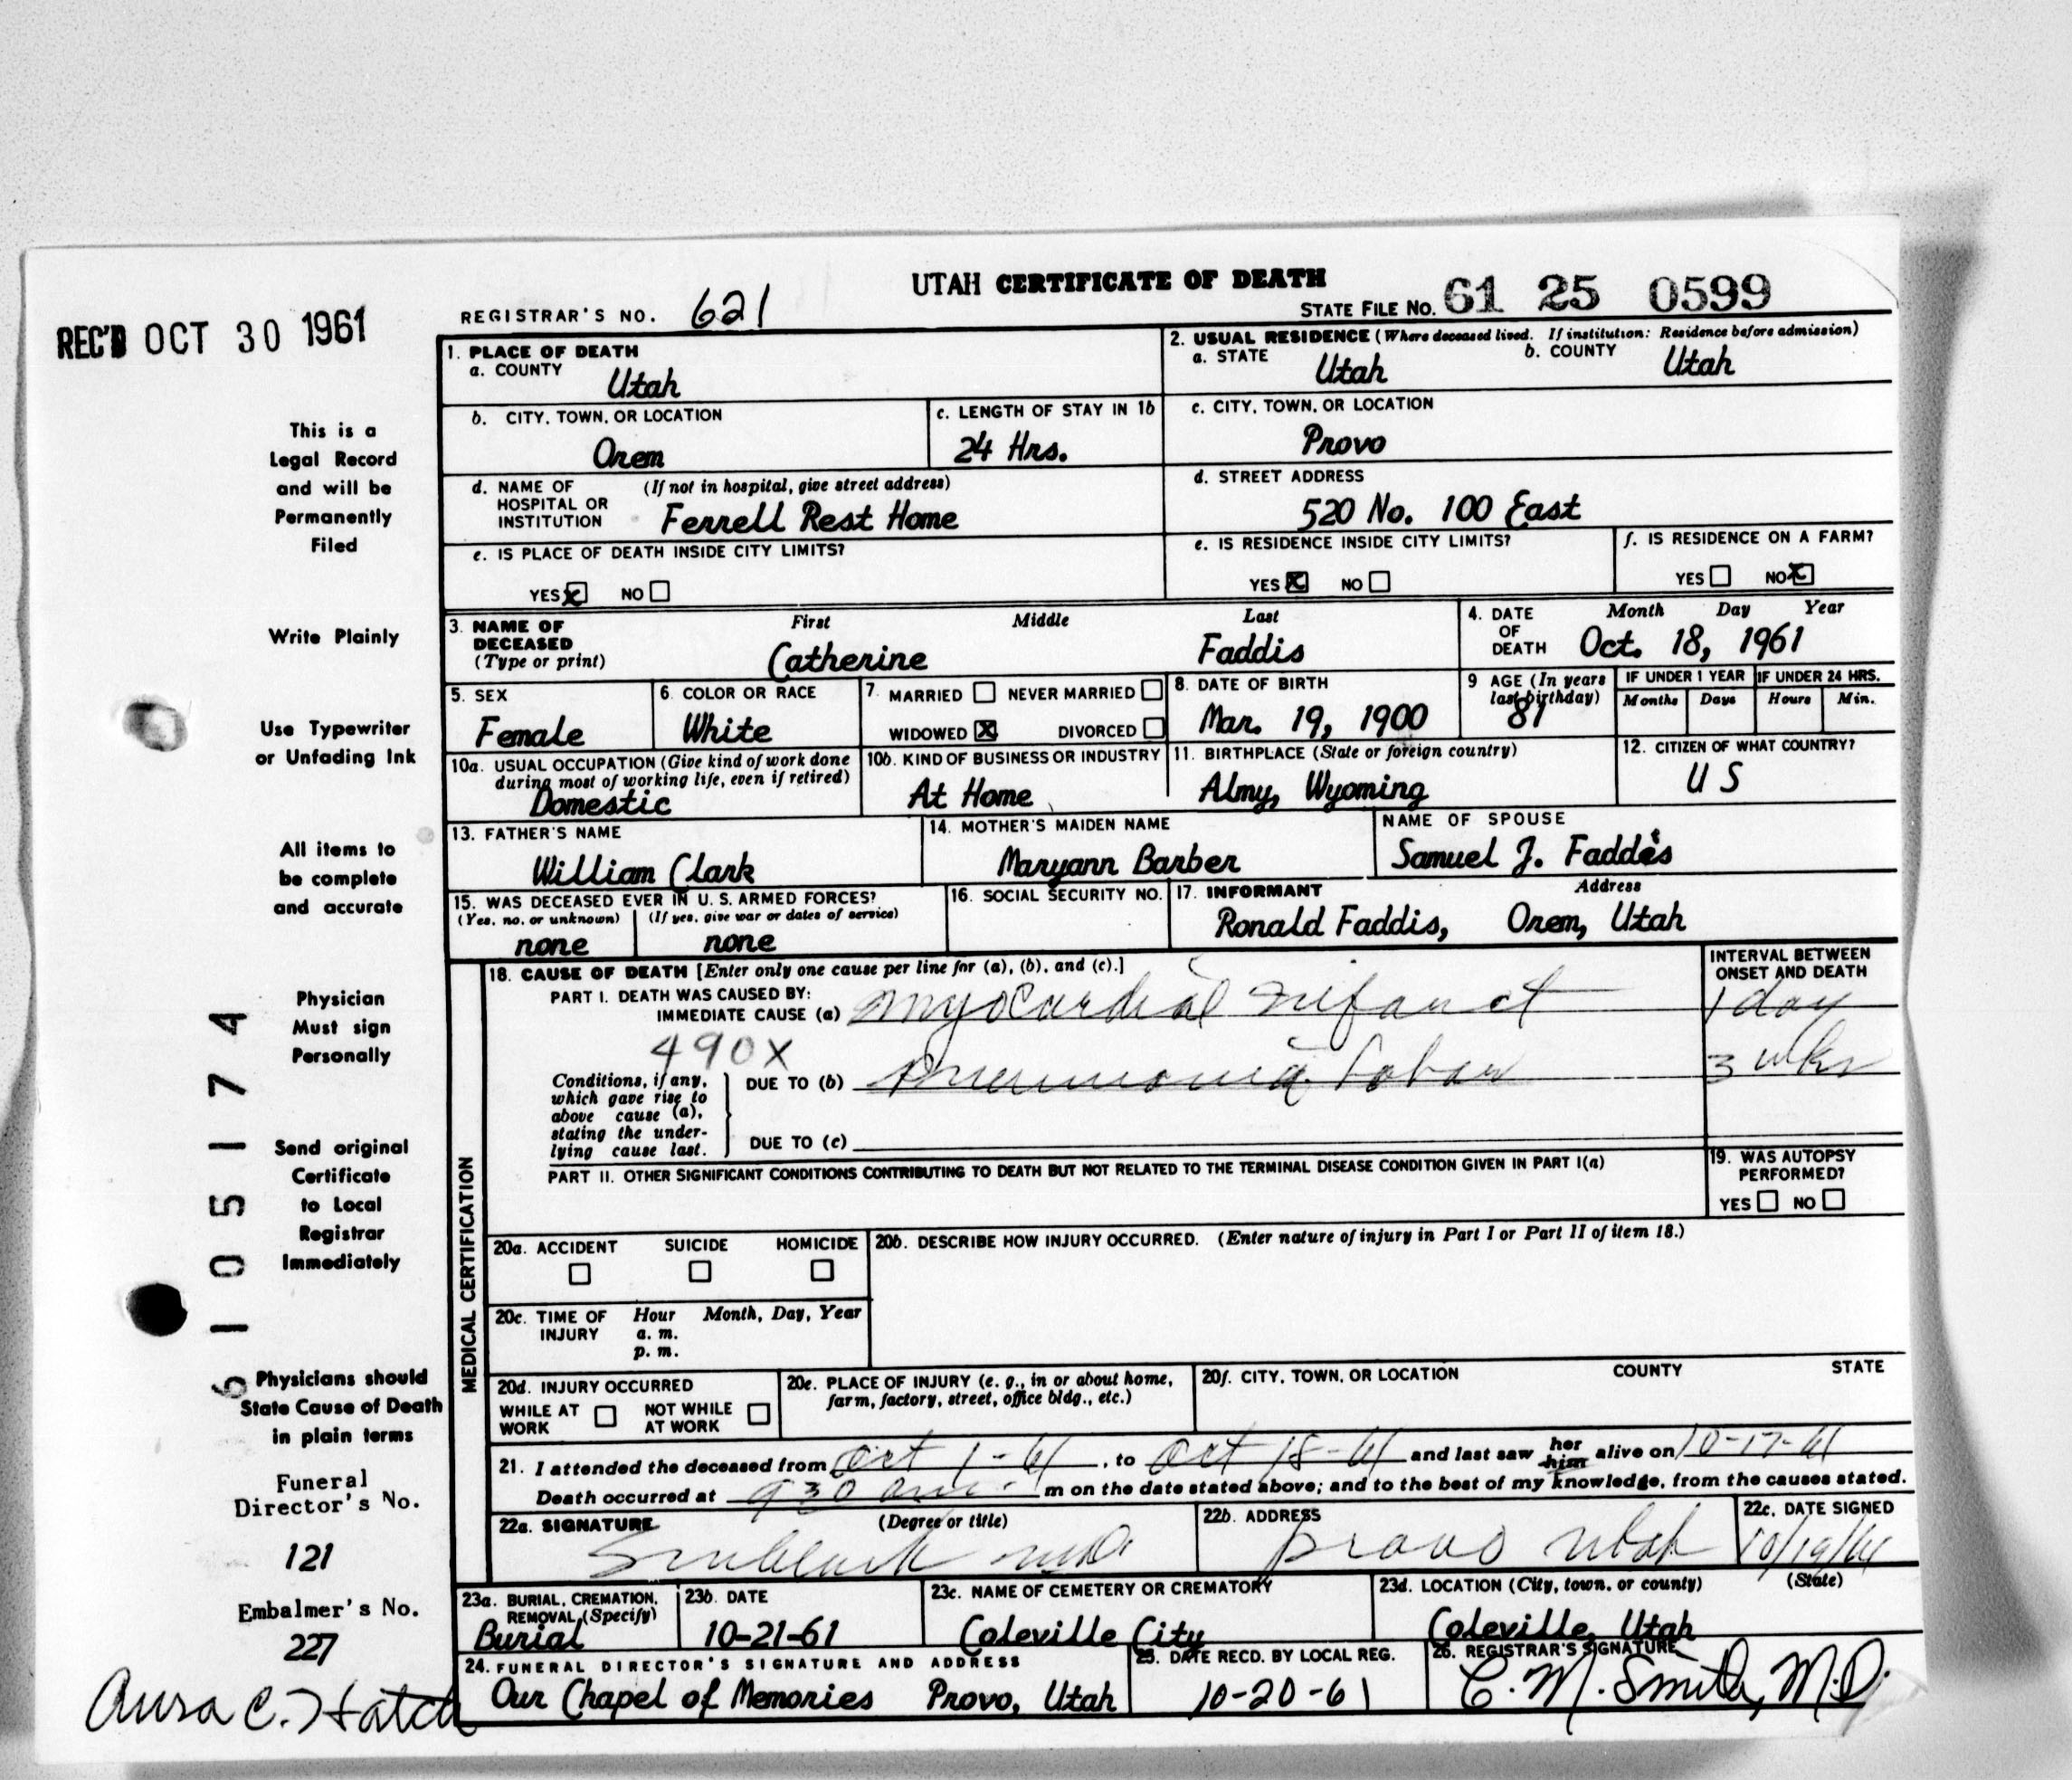 UTAH CERTIFICATE OF DEATH
REC'D OCT 30 1961
REGISTRAR'S NO. 621
STATE FILE NO. 61 25 0599
1. PLACE OF DEATH
a. COUNTY
Utah
2. USUAL RESIDENCE (Where deceased lived. If institution: Residence before admission)
a. STATE Utah
b. COUNTY Utah
b. CITY, TOWN, OR LOCATION
Orem
c. LENGTH OF STAY IN 1b
24 Hrs.
c. CITY, TOWN, OR LOCATION
Provo
d. NAME OF HOSPITAL OR INSTITUTION (If not in hospital, give street address)
Ferrell Rest Home
d. STREET ADDRESS
520 No. 100 East
e. IS PLACE OF DEATH INSIDE CITY LIMITS?
YES X NO
e. IS RESIDENCE INSIDE CITY LIMITS?
YES X NO
f. IS RESIDENCE ON A FARM?
YES NO X
3. NAME OF DECEASED (Type or print)
First Middle Last
Catherine Faddis
4. DATE OF DEATH Month Day Year
Oct. 18, 1961
5. SEX
Female
6. COLOR OR RACE
White
7. MARRIED NEVER MARRIED
WIDOWED X DIVORCED
8. DATE OF BIRTH
Mar. 19, 1900
9 AGE (In years last birthday)
81
IF UNDER 1 YEAR
Months Days
IF UNDER 24 HRS.
Hours Min.
10a. USUAL OCCUPATION (Give kind of work done during most of working life, even if retired)
Domestic
10b. KIND OF BUSINESS OR INDUSTRY
At Home
11. BIRTHPLACE (State or foreign country)
Almy, Wyoming
12. CITIZEN OF WHAT COUNTRY?
U S
13. FATHER'S NAME
William Clark
14. MOTHER'S MAIDEN NAME
Maryann Barber
NAME OF SPOUSE
Samuel J. Faddis
15. WAS DECEASED EVER IN U. S. ARMED FORCES?
(Yes, no, or unknown) (If yes, give war or dates of service)
none none
16. SOCIAL SECURITY NO.
17. INFORMANT Address
Ronald Faddis, Orem, Utah
MEDICAL CERTIFICATION
18. CAUSE OF DEATH [Enter only one cause per line for (a), (b), and (c).]
INTERVAL BETWEEN ONSET AND DEATH
PART I. DEATH WAS CAUSED BY:
IMMEDIATE CAUSE (a) Myocardial Infarct 1 day
490X
Conditions, if any, which gave rise to above cause (a), stating the underlying cause last.
DUE TO (b) Pneumonia Lobar 3 wks
DUE TO (c)
PART II. OTHER SIGNIFICANT CONDITIONS CONTRIBUTING TO DEATH BUT NOT RELATED TO THE TERMINAL DISEASE CONDITION GIVEN IN PART I(a)
19. WAS AUTOPSY PERFORMED?
YES NO
20a. ACCIDENT SUICIDE HOMICIDE
20b. DESCRIBE HOW INJURY OCCURRED. (Enter nature of injury in Part I or Part II of item 18.)
20c. TIME OF INJURY Hour Month, Day, Year
a. m.
p. m.
20d. INJURY OCCURRED
WHILE AT WORK NOT WHILE AT WORK
20e. PLACE OF INJURY (e. g., in or about home, farm, factory, street, office bldg., etc.)
20f. CITY, TOWN, OR LOCATION COUNTY STATE
21. I attended the deceased from Oct 1-61, to Oct 18-61 and last saw her him alive on 10-17-61
Death occurred at 930 am. m on the date stated above; and to the best of my knowledge, from the causes stated.
22a. SIGNATURE (Degree or title)
M.D.
22b. ADDRESS
Provo Utah
22c. DATE SIGNED
10/19/61
23a. BURIAL, CREMATION, REMOVAL (Specify)
Burial
23b. DATE
10-21-61
23c. NAME OF CEMETERY OR CREMATORY
Coleville City
23d. LOCATION (City, town, or county) (State)
Coleville, Utah
24. FUNERAL DIRECTOR'S SIGNATURE AND ADDRESS
Our Chapel of Memories Provo, Utah
25. DATE RECD. BY LOCAL REG.
10-20-61
26. REGISTRAR'S SIGNATURE
C. M. Smith, M.D.
This is a
Legal Record
and will be
Permanently
Filed
Write Plainly
Use Typewriter
or Unfading Ink
All items to
be complete
and accurate
Physician
Must sign
Personally
Send original
Certificate
to Local
Registrar
Immediately
Physicians should
State Cause of Death
in plain terms
Funeral
Director's No.
121
Embalmer's No.
227
Aura C. Hatch
6 1 0 5 1 7 4